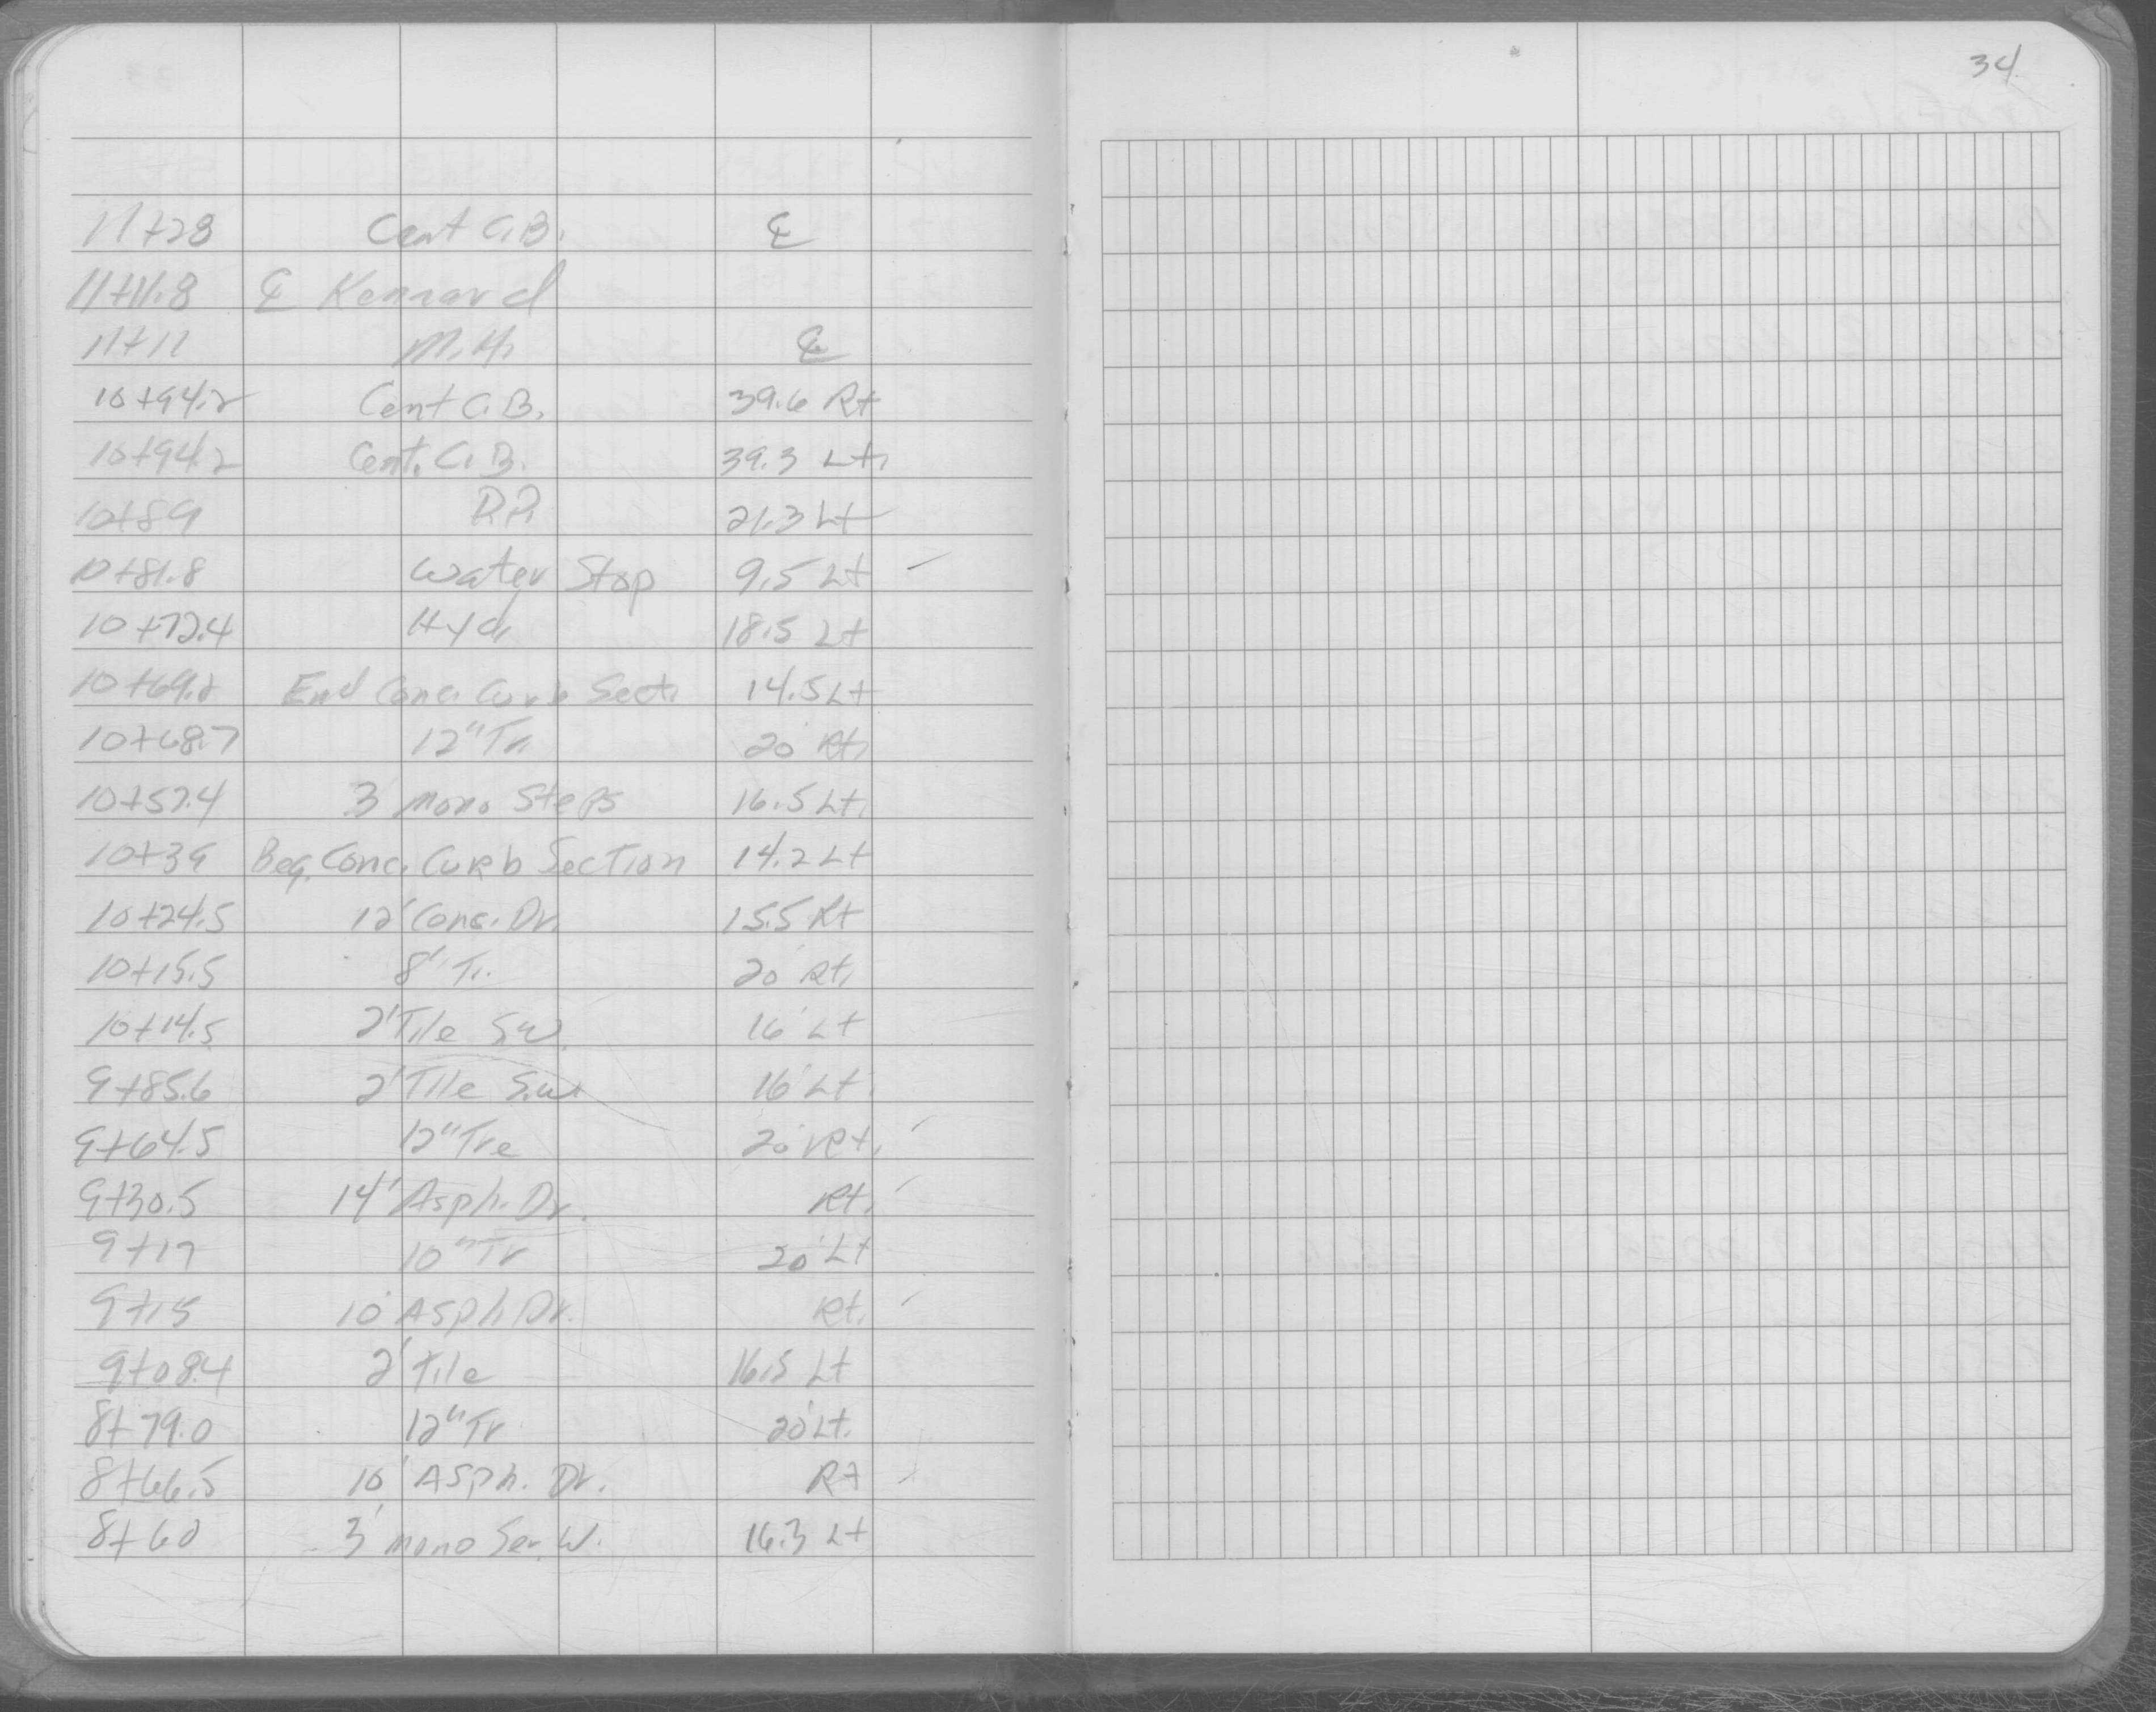 34
11+28 Cent C.B. ℄
11+11.8 ℄ Kennard
11+11 M.H. ℄
10+94.2 Cent C.B. 39.6 Rt
10+94.2 Cent. C.B. 39.3 Lt.
10+89 P.P. 21.3 Lt
10+81.8 Water Stop 9.5 Lt
10+72.4 Hyd. 18.5 Lt
10+69.2 End Conc. Curb Sect. 14.5 Lt
10+68.7 12" Tr. 20' Rt.
10+57.4 3' mono Steps 16.5 Lt.
10+39 Beg. Conc. Curb Section 14.2 Lt
10+24.5 12' Conc. Dr. 15.5 Rt
10+15.5 8" Tr. 20' Rt.
10+14.5 2' Tile S.W. 16' Lt
9+85.6 2' Tile S.W. 16' Lt.
9+64.5 12" Tre 20' Rt.
9+30.5 14' Asph. Dr. Rt.
9+17 10" Tr 20' Lt
9+15 10' Asph Dr. Rt.
9+08.4 2' Tile 16.5 Lt
8+79.0 12" Tr 20' Lt.
8+66.5 10' Asph. Dr. Rt
8+60 3' mono Ser. W. 16.3 Lt